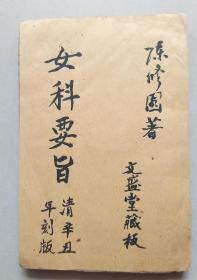 陈修园著
文盛堂藏板
女科要旨
清辛丑
年刻版